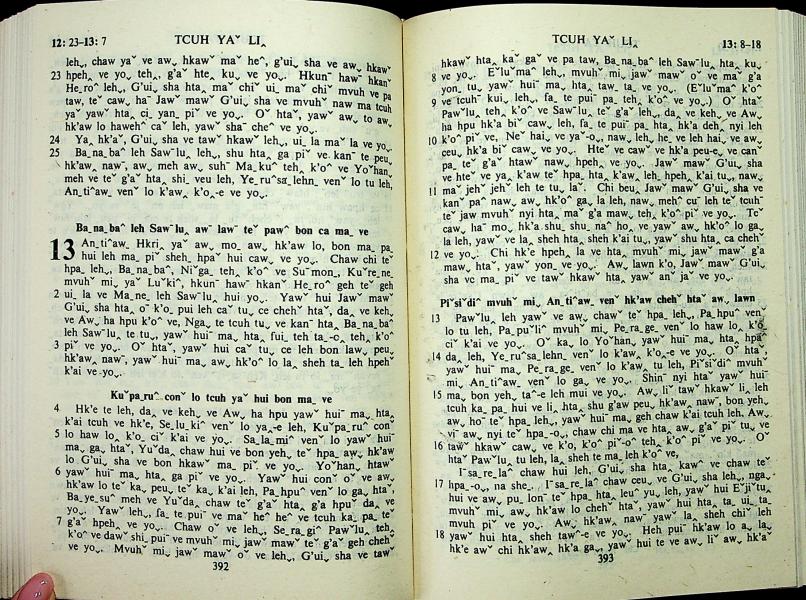 12: 23–13: 7 TCUH YAˇ LI‸
leh ̬, chaw yaˇ ve aw ̬, hkawˇ maˇ heˆ, g'ui ̬ sha ve aw ̬ hkaw
23 hpeh ̬ ve yo ̬, teh ̬, g'aˇ hte ̬ ku ̬ ve yo ̬. Hkunˉ hawˉ hkanˇ
He ̬roˆ leh ̬, G'ui ̬ sha hta ̬ maˇ chiˇ ui ̬ maˇ chiˇ mvuh ve pa
taw, teˇ caw ̬ haˉ Jawˇ mawˇ G'ui ̬ sha ve mvuhˇ naw ma tcuh
yaˇ yawˇ hta ̬ ci ̬ yan ̬ piˇ ve yo ̬. Oˇ htaˇ, yawˇ aw ̬ to aw ̬
hk'aw lo hawehˆ caˇ leh, yawˇ sha ̬ cheˇ ve yo ̬.
24 Ya ̬ hk'aˇ, G'ui ̬ sha ve tawˇ hkawˇ leh ̬, ui ̬ la ma ̬ la ve yo ̬.
25 Ba ̬na ̬baˆ leh Sawˇlu ̬ leh ̬, shu hta ̬ ga piˇ ve kanˇ te peu ̬
hk'aw ̬ nawˉ, aw ̬ meh aw ̬ suhˉ Ma ̬kuˆ teh ̬ k'oˆ ve Yoˇhan ̬
meh ve teˇ g'aˇ hta ̬ shi ̬ veu leh, Ye ̬ruˆsa ̬lehn ̬ venˇ lo tu leh,
An ̬tiˆaw ̬ venˇ lo k'aw ̬ k'o ̬-e ve yo ̬.
Ba ̬na ̬baˆ leh Sawˇlu ̬ awˇ lawˇ teˇ pawˆ bon ca ma ̬ ve
13 An ̬tiˆaw ̬ Hkri ̬ yaˇ aw ̬ mo ̬ aw ̬ hk'aw lo, bon ma ̬ pa ̬
hui leh ma ̬ piˇ sheh ̬ hpaˇ hui caw ̬ ve yo ̬. Chaw chi teˇ
hpa ̬ leh ̬, Ba ̬na ̬baˆ, Niˇga ̬ teh ̬ k'oˆ ve Suˉmon ̬, Kuˇre ̬ne ̬
mvuhˇ mi ̬ yaˇ Luˇkiˆ, hkunˉ hawˉ hkanˇ He ̬roˆ geh teˇ geh
2 ui ̬ la ve Ma ̬ne ̬ leh Sawˇlu ̬ hui yo ̬. Yawˇ hui Jawˇ mawˇ
G'ui ̬ sha hta ̬ oˉ k'o ̬ pui leh caˇ tu ̬ ce chehˇ htaˇ, da ̬ ve keh ̬
ve Aw ̬ ha hpu k'oˆ ve, Nga ̬ te tcuh tu ̬ ve kanˉ hta ̬ Ba ̬na ̬baˆ
leh Sawˇlu ̬ te tu ̬, yawˇ huiˉ ma ̬ hta ̬ fui ̬ teh ta ̬-o ̬ teh ̬ k'oˆ
3 piˇ ve yo ̬. Oˇ htaˇ, yawˇ hui caˇ tu ̬ ce leh bon law ̬ peu ̬
hk'aw ̬ nawˉ, yawˇ huiˉ ma ̬ aw ̬ hk'oˇ lo la ̬ sheh ta leh hpeh
k'ai ve yo ̬.
Kuˇpa ̬ruˆ conˇ lo tcuh yaˇ hui bon ma ̬ ve
4 Hk'e te leh, da ̬ ve keh ̬ ve Aw ̬ ha hpu yawˇ huiˉ ma ̬ hta ̬
k'ai tcuh ve hk'e, Se ̬lu ̬kiˆ venˇ lo ya ̬-e leh, Kuˇpa ̬ruˆ conˇ
5 lo haw lo ̬ k'o ̬ ciˇ k'ai ve yo ̬. Sa ̬la ̬miˆ venˇ lo yawˇ hui
ma ̬ ga ̬ htaˇ, Yuˇda ̬ chaw hui ve bon yeh ̬ teˇ hpa ̬ aw ̬ hk'aw
lo G'ui ̬ sha ve bon hkaw ma ̬ piˇ ve yo ̬. Yoˇhan ̬ htawˇ
6 yawˇ huiˉ ma ̬ hta ̬ ga piˇ ve yo ̬. Yawˇ hui conˇ oˇ ve aw ̬
hk'aw lo teˇ ka ̬ peu ̬ teˇ ka ̬ k'ai leh, Pa ̬hpuˆ venˇ lo ga ̬ htaˇ,
Ba ̬ye ̬suˆ meh ve Yuˇda ̬ chaw teˇ g'aˇ hta ̬ g'a hpuˇ da ̬ ve
yo ̬. Yawˇ leh ̬, fa ̬ te puiˉ ve maˇ heˆ heˆ ve tcuh ka ̬ pa ̬ teˇ
7 g'aˇ hpeh ̬ ve yo ̬. Chaw oˇ ve leh ̬, Se ̬ra ̬giˆ Pawˇlu ̬ teh ̬
k'oˆ ve dawˇ shi ̬ puiˉ ve mvuhˇ mi ̬ jawˇ mawˇ teˇ g'aˇ geh chehˇ
ve yo ̬. Mvuhˇ mi ̬ jawˇ mawˇ oˇ ve leh ̬, G'ui ̬ sha ve tawˇ
392
TCUH YAˇ LI‸ 13: 8–18
hkawˇ hta ̬ ka ̬ gaˇ ve pa taw, Ba ̬na ̬baˆ leh Sawˇlu ̬ hta ̬ ku ̬
8 ve yo ̬. Eˇluˇmaˆ leh ̬, mvuhˇ mi ̬ jawˇ mawˇ oˇ ve maˇ g'a
yon ̬ tu ̬ yawˇ huiˉ ma ̬ hta ̬ taw ̬ ta ̬ ve yo ̬. (Eˇluˇmaˆ k'oˆ
9 ve tcuhˇ kui ̬ leh ̬, fa ̬ te puiˉ pa ̬ teh ̬ k'oˆ ve yo ̬.) Oˇ htaˇ
Pawˇlu ̬ teh ̬ k'oˆ ve Sawˇlu ̬ teˇ g'aˇ leh ̬, da ̬ ve keh ̬ ve Aw ̬
ha hpu hk'a biˇ caw ̬ ve leh, fa ̬ te puiˉ pa ̬ hta ̬ hk'a deh ̬ nyi leh
10 k'oˆ piˇ ve, Neˇ hai ̬ ve yaˇ-o ̬, naw ̬ leh, he ̬ ve leh hai ̬ ve aw ̬
ceu ̬ hk'a biˇ caw ̬ ve yo ̬. Hteˇ ve cawˇ ve hk'a peu-e ̬ ve canˇ
pa ̬ teˇ g'aˇ htawˇ nawˬ hpeh ̬ ve yo ̬. Jawˇ mawˇ G'ui ̬ sha
ve hteˇ ve ya ̬ k'aw teˇ hpa ̬ hta ̬ k'aw leh ̬ hpeh ̬ k'ai tu ̬ naw ̬
11 maˇ jehˇ jehˇ leh te tu ̬ laˇ. Chi beu ̬ Jawˇ mawˇ G'ui ̬ sha ve
kanˉ paˆ naw ̬ aw ̬ hk'oˇ ga ̬ la leh, naw ̬ mehˇ cuˇ leh teˇ tcuhˉ
teˇ jaw mvuhˇ nyi hta ̬ maˇ g'a maw ̬ teh ̬ k'oˆ piˇ ve yo ̬. Teˇ
caw ̬ haˉ mo ̬ hk'a ̬ shu ̬ shu ̬ naˆ ho ̬ ve yawˇ aw ̬ hk'oˇ lo ga ̬
la leh, yawˇ ve la ̬ sheh hta ̬ sheh k'ai tu ̬, yawˇ shu hta ̬ ca chehˇ
12 ve yo ̬. Chi hk'e hpeh ̬ la ve hta ̬ mvuhˇ mi ̬ jawˇ mawˇ g'a
mawˬ htaˇ, yawˇ yon ̬ ve yo ̬. Aw ̬ lawn k'o ̬ Jawˇ mawˇ G'ui ̬
sha ve ma ̬ piˇ ve tawˇ hkawˇ hta ̬ yawˇ anˇ jaˇ ve yo ̬.
Piˇsiˇdiˆ mvuhˇ mi ̬ An ̬tiˆaw ̬ venˇ hk'aw chehˇ htaˇ aw ̬ lawn
13 Pawˇlu ̬ leh yawˇ ve aw ̬ chawˇ teˇ hpa ̬ leh ̬, Pa ̬hpuˆ venˇ
lo tu leh, Pa ̬puˇliˆ mvuhˇ mi ̬ Pe ̬ra ̬ge ̬ venˇ lo haw lo ̬ k'o ̬
ciˇ k'ai ve yo ̬. Oˇ ka ̬ lo Yoˇhan ̬ yawˇ huiˉ ma ̬ hta ̬ hpaˇ
14 da ̬ leh, Ye ̬ruˆsa ̬lehn ̬ venˇ lo k'aw ̬ k'o ̬-e ve yo ̬. Oˇ htaˇ,
yawˇ huiˉ ma ̬ Pe ̬ra ̬ge ̬ venˇ lo k'aw ̬ tu leh, Piˇsiˇdiˆ mvuhˇ
mi ̬ An ̬tiˆaw ̬ venˇ lo ga ̬ ve yo ̬. Shinˉ nyi htaˇ yawˇ huiˉ
15 ma ̬ bon yeh ̬ taˆ-e leh mui ve yo ̬. Aw ̬ liˇ tawˇ hkawˇ li ̬ leh
tcuh ka ̬ pa ̬ hui ve li ̬ hta ̬ shu g'aw peu ̬ hk'aw ̬ nawˉ, bon yeh ̬
aw ̬ hoˉ teˇ hpa ̬ leh ̬, yawˇ huiˉ ma ̬ geh chaw k'ai tcuh leh, Aw ̬
viˉ aw ̬ nyi teˇ hpa ̬-o ̬, chaw chi ma ve hta ̬ aw ̬ g'aˇ piˇ tu ̬ ve
16 tawˇ hkawˇ caw ̬ ve k'o ̬ k'oˆ piˇ-oˆ teh ̬ k'oˆ piˇ ve yo ̬. Oˇ
htaˇ Pawˇlu ̬ tu leh, la ̬ sheh te ma ̬ leh k'oˆ ve,
Iˉsa ̬re ̬laˆ chaw hui leh, G'ui ̬ sha hta ̬ kawˆ ve chaw teˇ
17 hpa ̬-o ̬, na she ̬. Iˉsa ̬re ̬laˆ chaw ceu ̬ ve G'ui ̬ sha leh ̬, nga ̬
hui ve aw ̬ pu ̬ lonˉ teˇ hpa ̬ hta ̬ leuˇ yu ̬ leh, yawˇ hui Eˇjiˇtu ̬
mvuhˇ mi ̬ aw ̬ hk'aw lo chehˇ htaˇ, yawˇ hui hta ̬ ta ̬ ui ̬ ta ̬
mvuhˇ piˇ ve yo ̬. Aw ̬ hk'aw ̬ nawˉ yawˇ la ̬ sheh chiˇ leh
18 yawˇ hui hta ̬ sheh tawˇ-e ve yo ̬. Heh puiˉ hk'aw lo a ̬ la ̬
hk'e aw ̬ chi hk'aw ̬ hk'a ga ̬, yawˇ hui te ve aw ̬ liˇ aw ̬ hk'aˇ
393